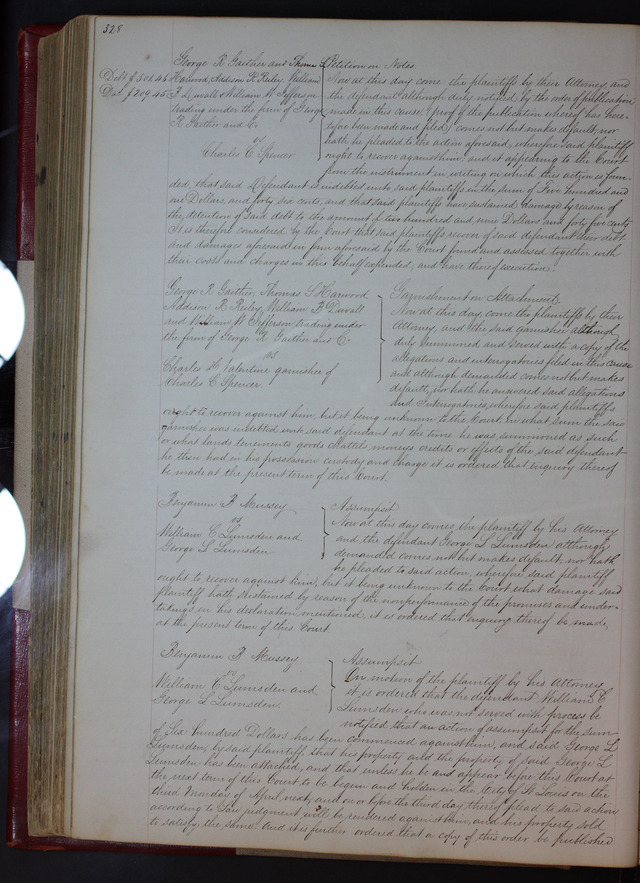 328
George R Gaither and Thomas S
Harwood, Addison R Reiley, William
F Duvall & William W Jefferson
trading under the firm of George
R Gaither and Co.
vs
Charles C Spencer
Debt $501.46
Da. $209.45
Petition on Notes.
Now at this day come the plaintiffs by their Attorney, and
the defendant although duly notified by the order of publication
made in this cause (proof of the publication whereof has here-
tofore been made and filed) comes not but makes default, nor
hath he pleaded to the action aforesaid, wherefore said plaintiffs
ought to recover against him: and it appearing to the Court
from the instrument in writing on which this action is foun-
ded, that said Defendant is indebted unto said plaintiffs in the sum of Five hundred and
one Dollars, and forty six cents, and that said plaintiffs have sustained damage by reason of
the detention of said debt to the amount of two hundred and nine Dollars and forty five cents
It is therefore considered by the Court that said plaintiffs recover of said defendant their debt
and damages aforesaid in form aforesaid by the Court found and assessed together with
their costs and charges in this behalf expended, and have thereof execution.
George R Gaither, Thomas S Harwood
Addison R Reiley, William B Duvall
and William W Jefferson trading under
the firm of George R Gaither and Co.
vs
Charles H Valentine garnishee of
Charles C Spencer.
Garnishment on Attachment.
Now at this day, come the plaintiffs by their
Attorney, and the said garnishee although
duly summoned and served with a copy of the
allegations and interrogatories filed in this cause
and although demanded comes not but makes
default, nor hath he answered said allegations
and Interrogatories, wherefore said plaintiffs
ought to recover against him; but it being unknown to the Court in what sum the said
garnishee was indebted unto said defendant at the time he was summoned as such
or what lands tenements goods chattels moneys credits or effects of the said defendant
he then had in his possession custody and charge it is ordered that enquiry thereof
be made at the present term of this Court.
Benjamin B Mussey
vs
William C Lumsden and
George L Lumsden
Assumpsit
Now at this day comes, the plaintiff by his Attorney
and the defendant George L Lumsden although
demanded comes not but makes default, nor hath
he pleaded to said action, wherefore said plaintiff
ought to recover against him, but it being unknown to the Court what damage said
plaintiff hath sustained by reason of the nonperformance of the promises and under-
takings in his declaration mentioned, it is ordered that enquiry thereof be made,
at the present term of this Court
Benjamin B Mussey
vs
William C Lumsden and
George L Lumsden.
Assumpsit
On motion of the plaintiff by his Attorney
it is ordered that the defendant William C
Lumsden who was not served with process be
notified that an action of assumpsit for the sum
of Six hundred Dollars has been commenced against him, and said George L
Lumsden, by said plaintiff, that his property and the property of said George L
Lumsden has been attached, and that unless he be and appear before this Court at
the next term of this Court to be begun and holden in the City of St Louis on the
third Monday of April next, and on or before the third day thereof plead to said action
according to Law judgment will be rendered against him, and his property sold
to satisfy the same. And it is further ordered that a copy of this order be published